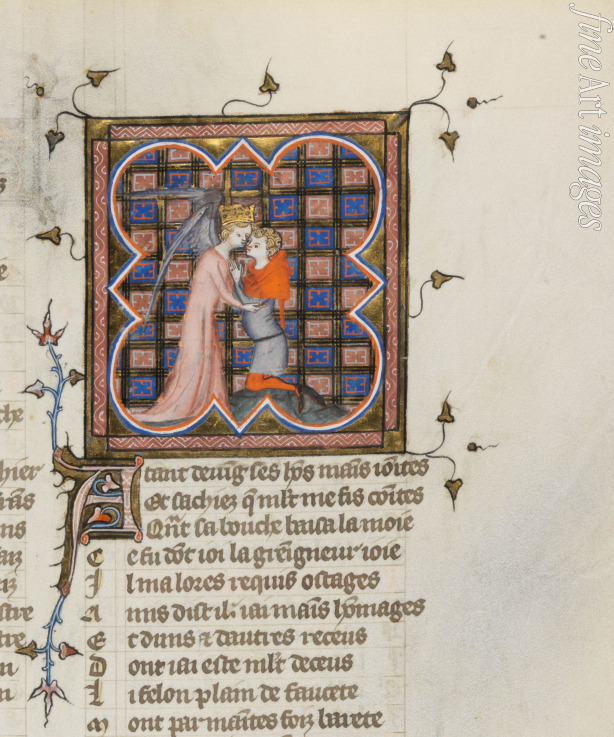 Atant deuīg ses hōs mais ioītes
Et sachiez q̄ mlt me fis cōites
Qn̄t sa bouche baisa la moie
Ce fu dōt ioi la greigneur ioie
Il ma lores requis ostages
Amis dist il iai mais hōmages
Et duns ⁊ dautres receus
Dont iai este mlt deceus
Li felon plain de faucete
Mont par maītes foiz barete
fine Art images